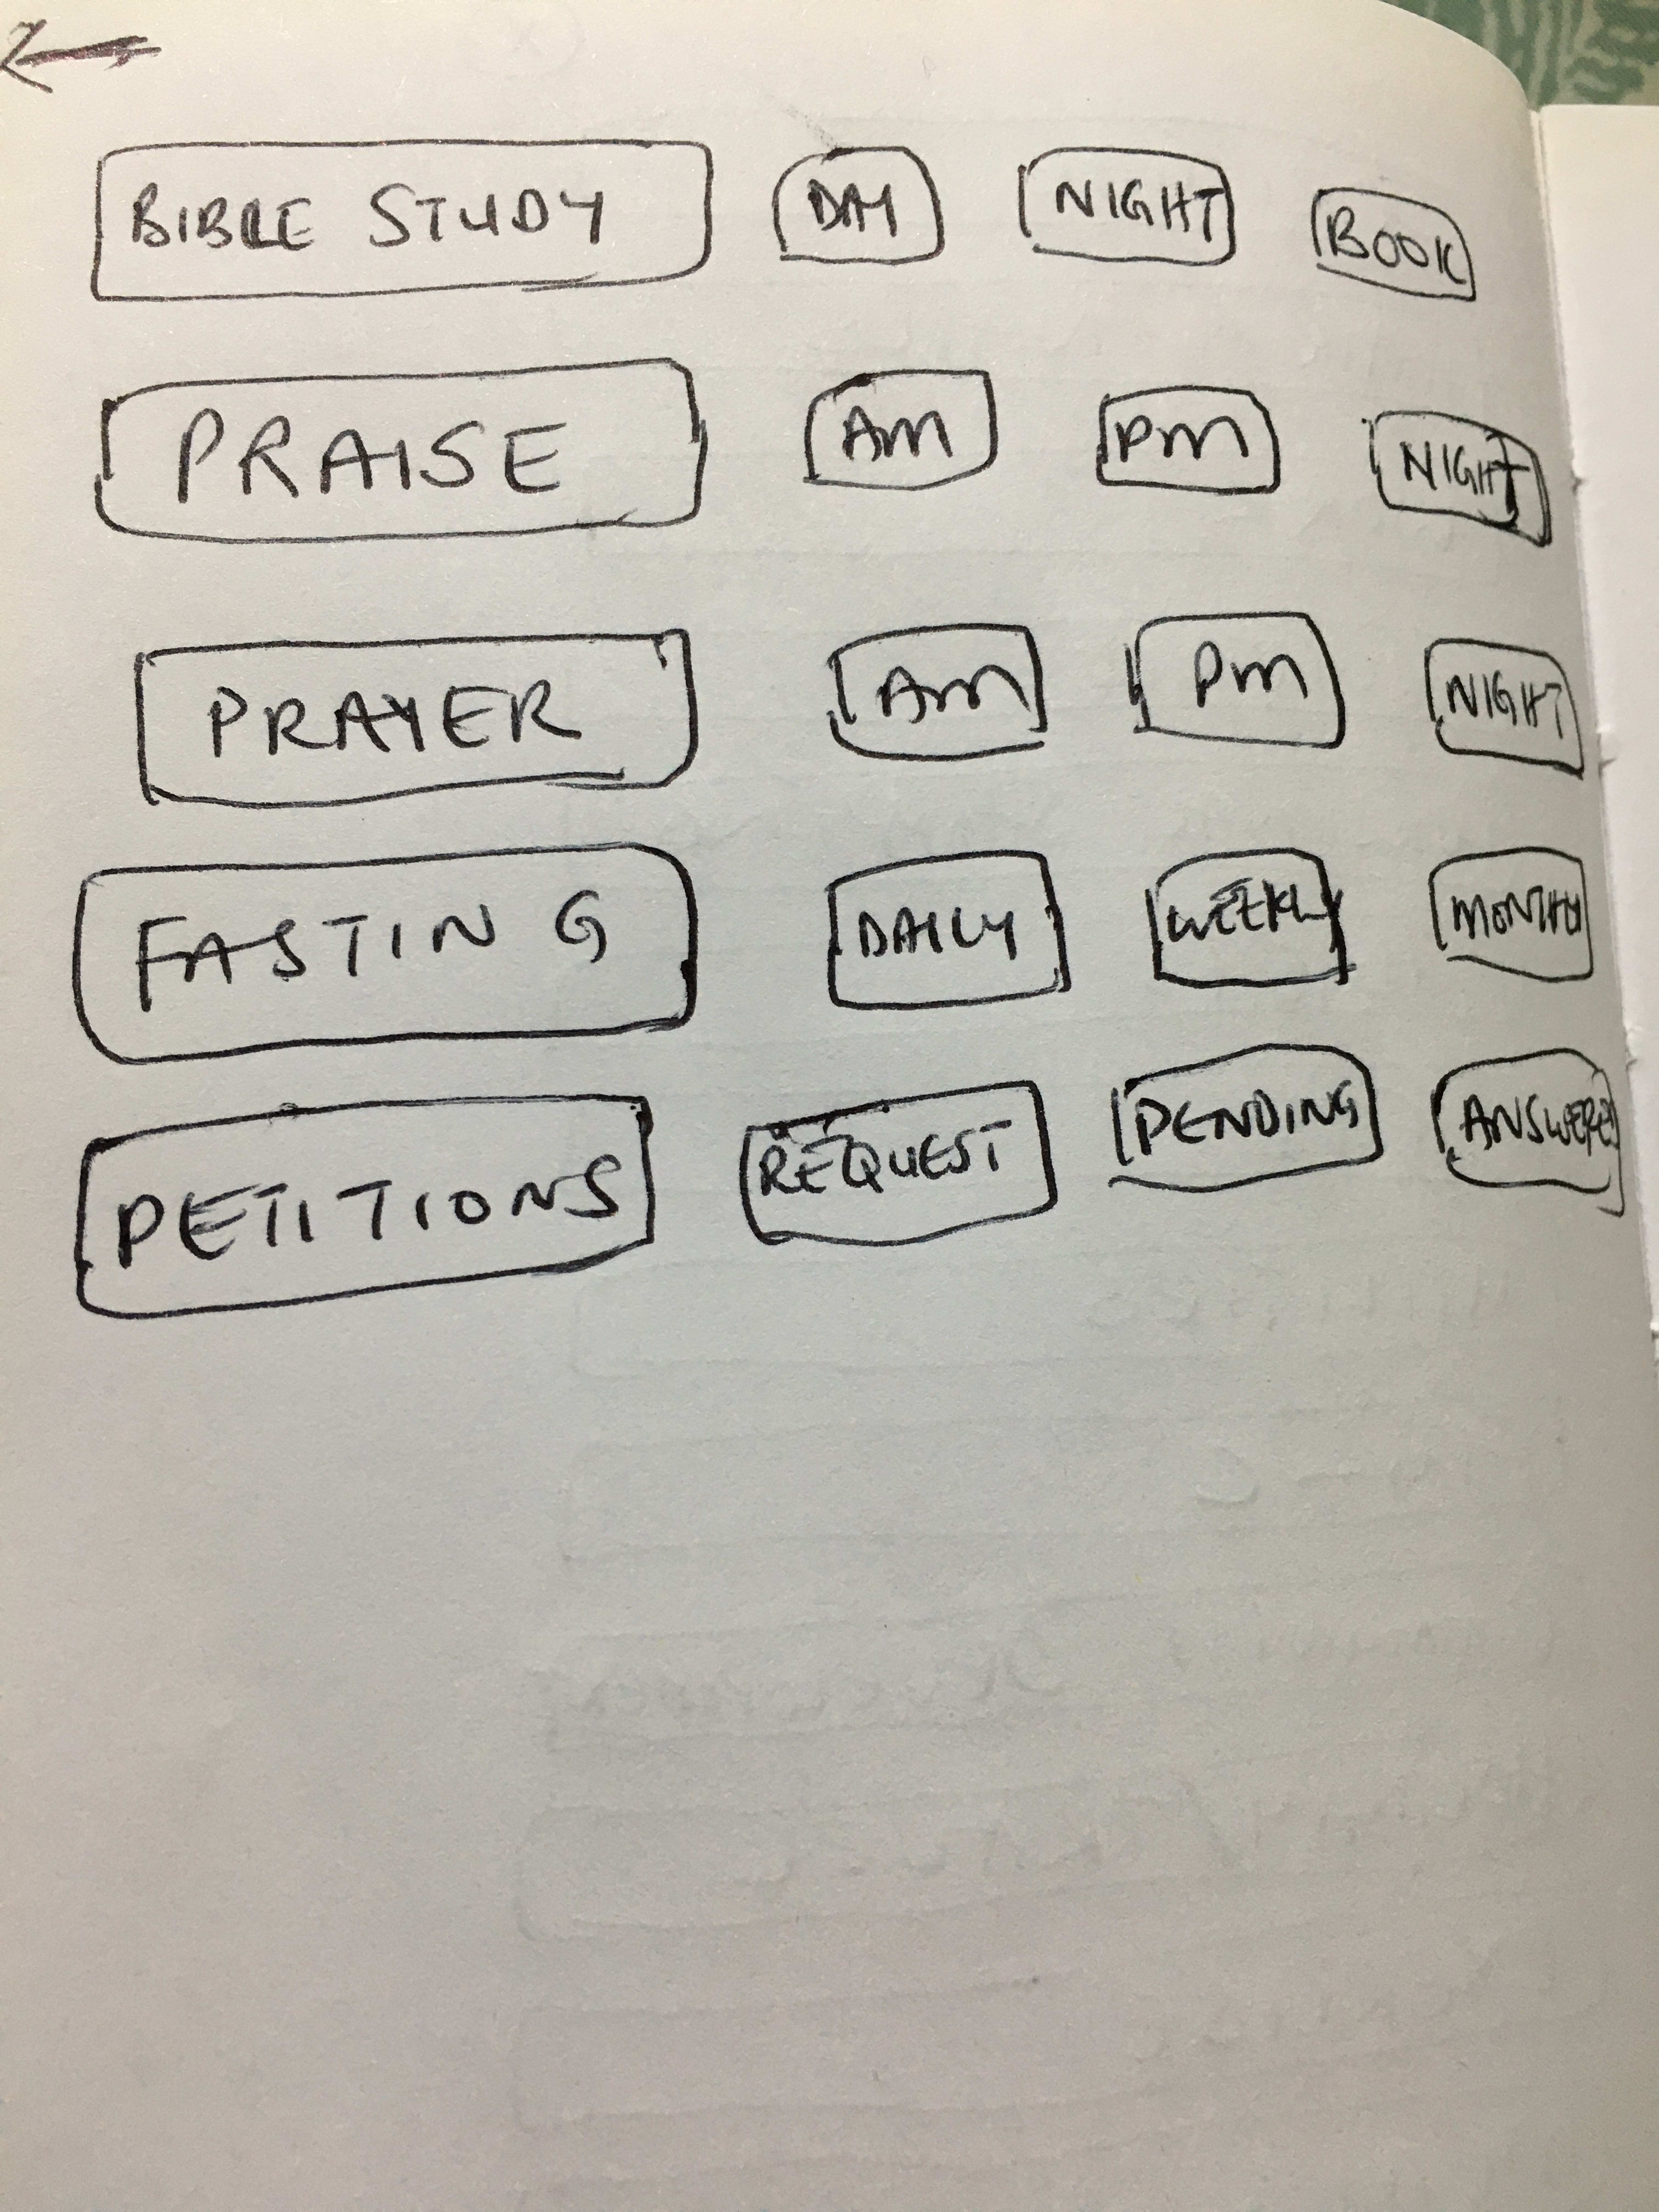 BIBLE STUDY DAY NIGHT BOOK
PRAISE AM PM NIGHT
PRAYER AM PM NIGHT
FASTING DAILY WEEKLY MONTHLY
PETITIONS REQUEST PENDING ANSWERED